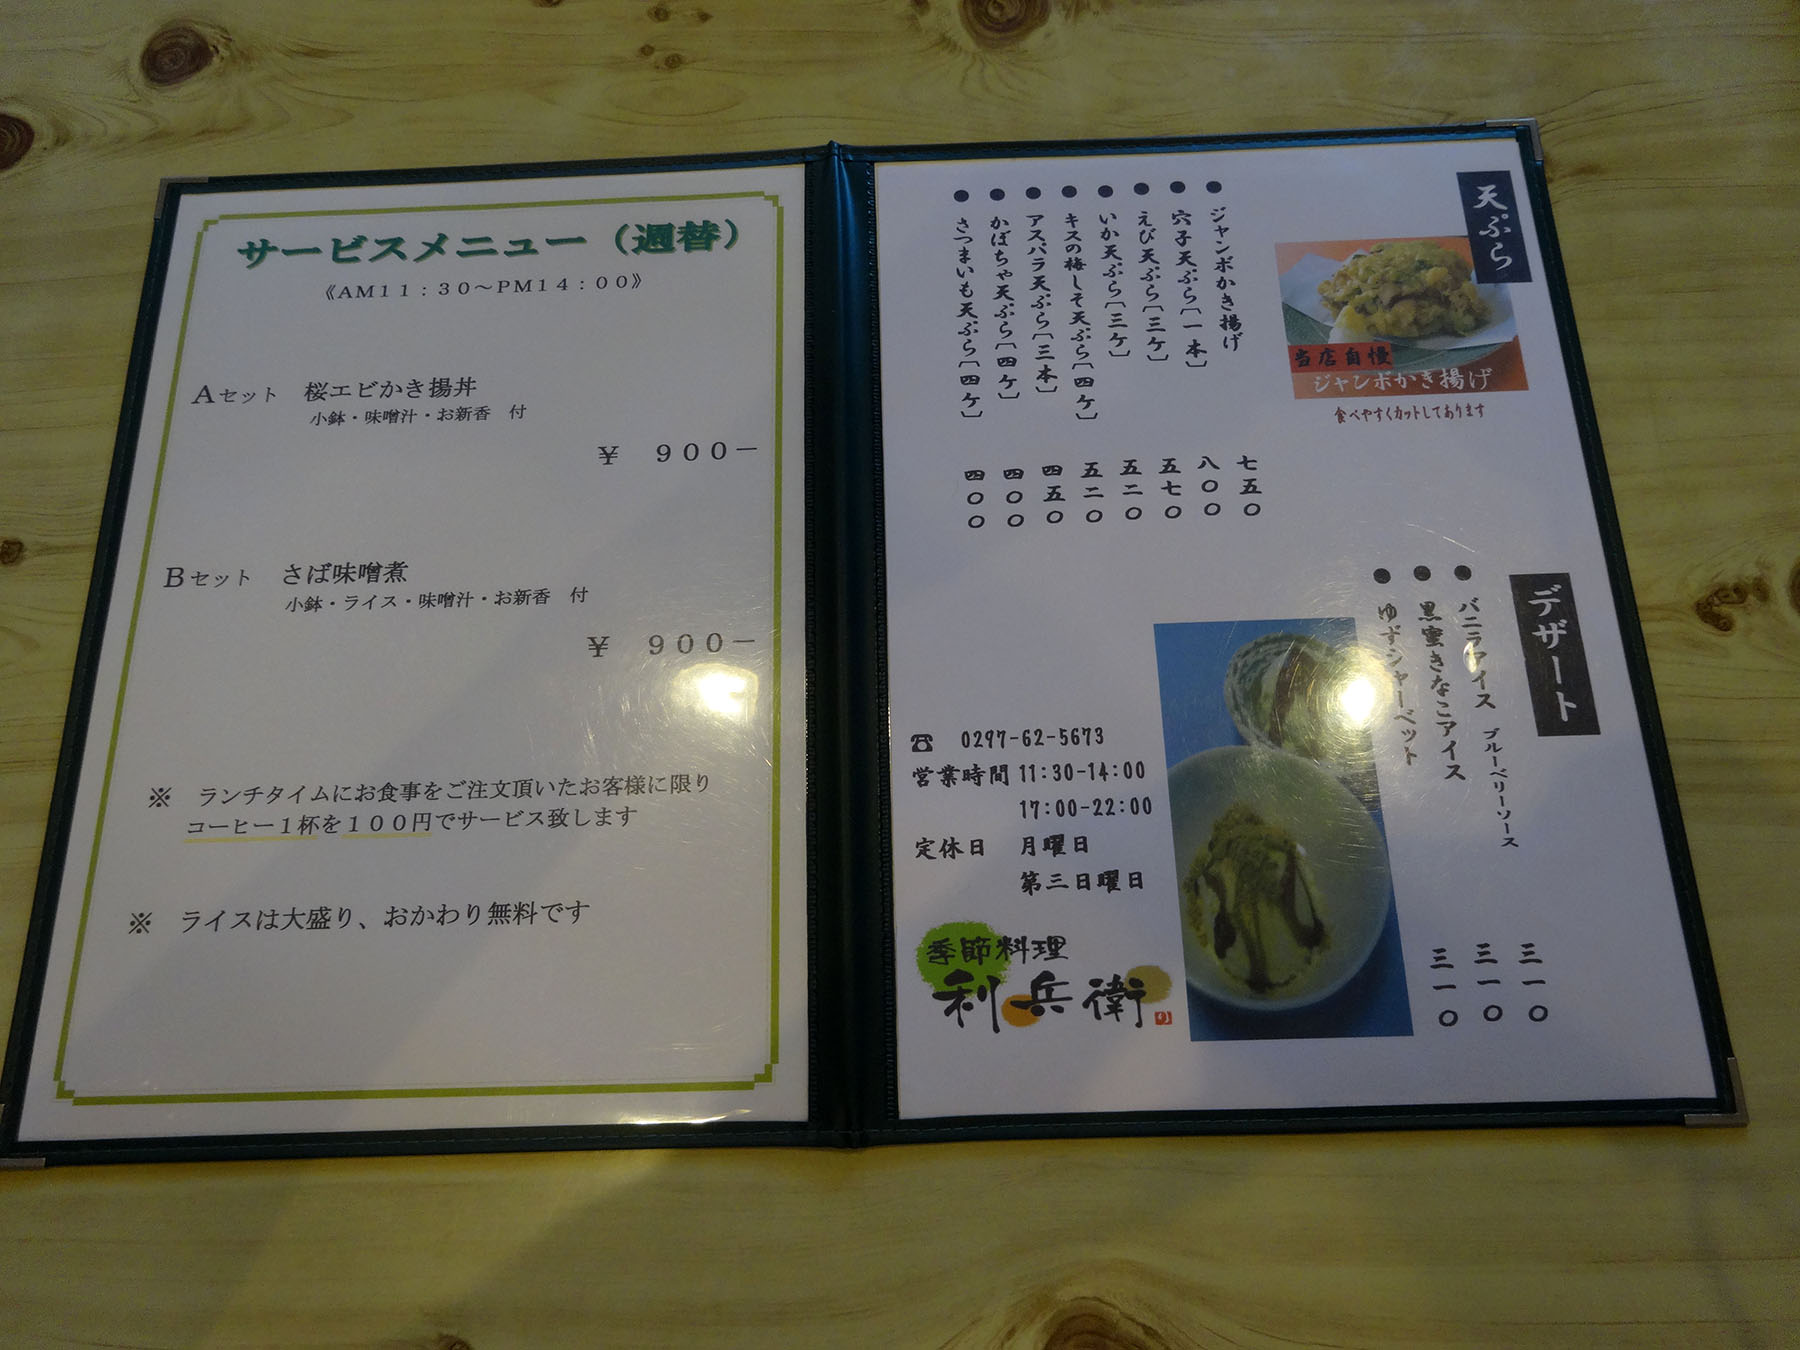 サービスメニュー（週替）
《AM11：30～PM14：00》
Aセット　桜エビかき揚丼
小鉢・味噌汁・お新香　付
¥　900－
Bセット　さば味噌煮
小鉢・ライス・味噌汁・お新香　付
¥　900－
※　ランチタイムにお食事をご注文頂いたお客様に限り
コーヒー1杯を100円でサービス致します
※　ライスは大盛り、おかわり無料です
天ぷら
当店自慢
ジャンボかき揚げ
食べやすくカットしてあります
●ジャンボかき揚げ　七五〇
●穴子天ぷら〔一本〕　八〇〇
●えび天ぷら〔三ケ〕　五七〇
●いか天ぷら〔三ケ〕　五二〇
●キスの梅しそ天ぷら〔四ケ〕　五二〇
●アスパラ天ぷら〔三本〕　四五〇
●かぼちゃ天ぷら〔四ケ〕　四〇〇
●さつまいも天ぷら〔四ケ〕　四〇〇
デザート
●バニラアイス　ブルーベリーソース　三一〇
●黒蜜きなこアイス　三一〇
●ゆずシャーベット　三一〇
☎　0297-62-5673
営業時間 11:30-14:00
17:00-22:00
定休日　月曜日
第三日曜日
季節料理
利兵衛
り